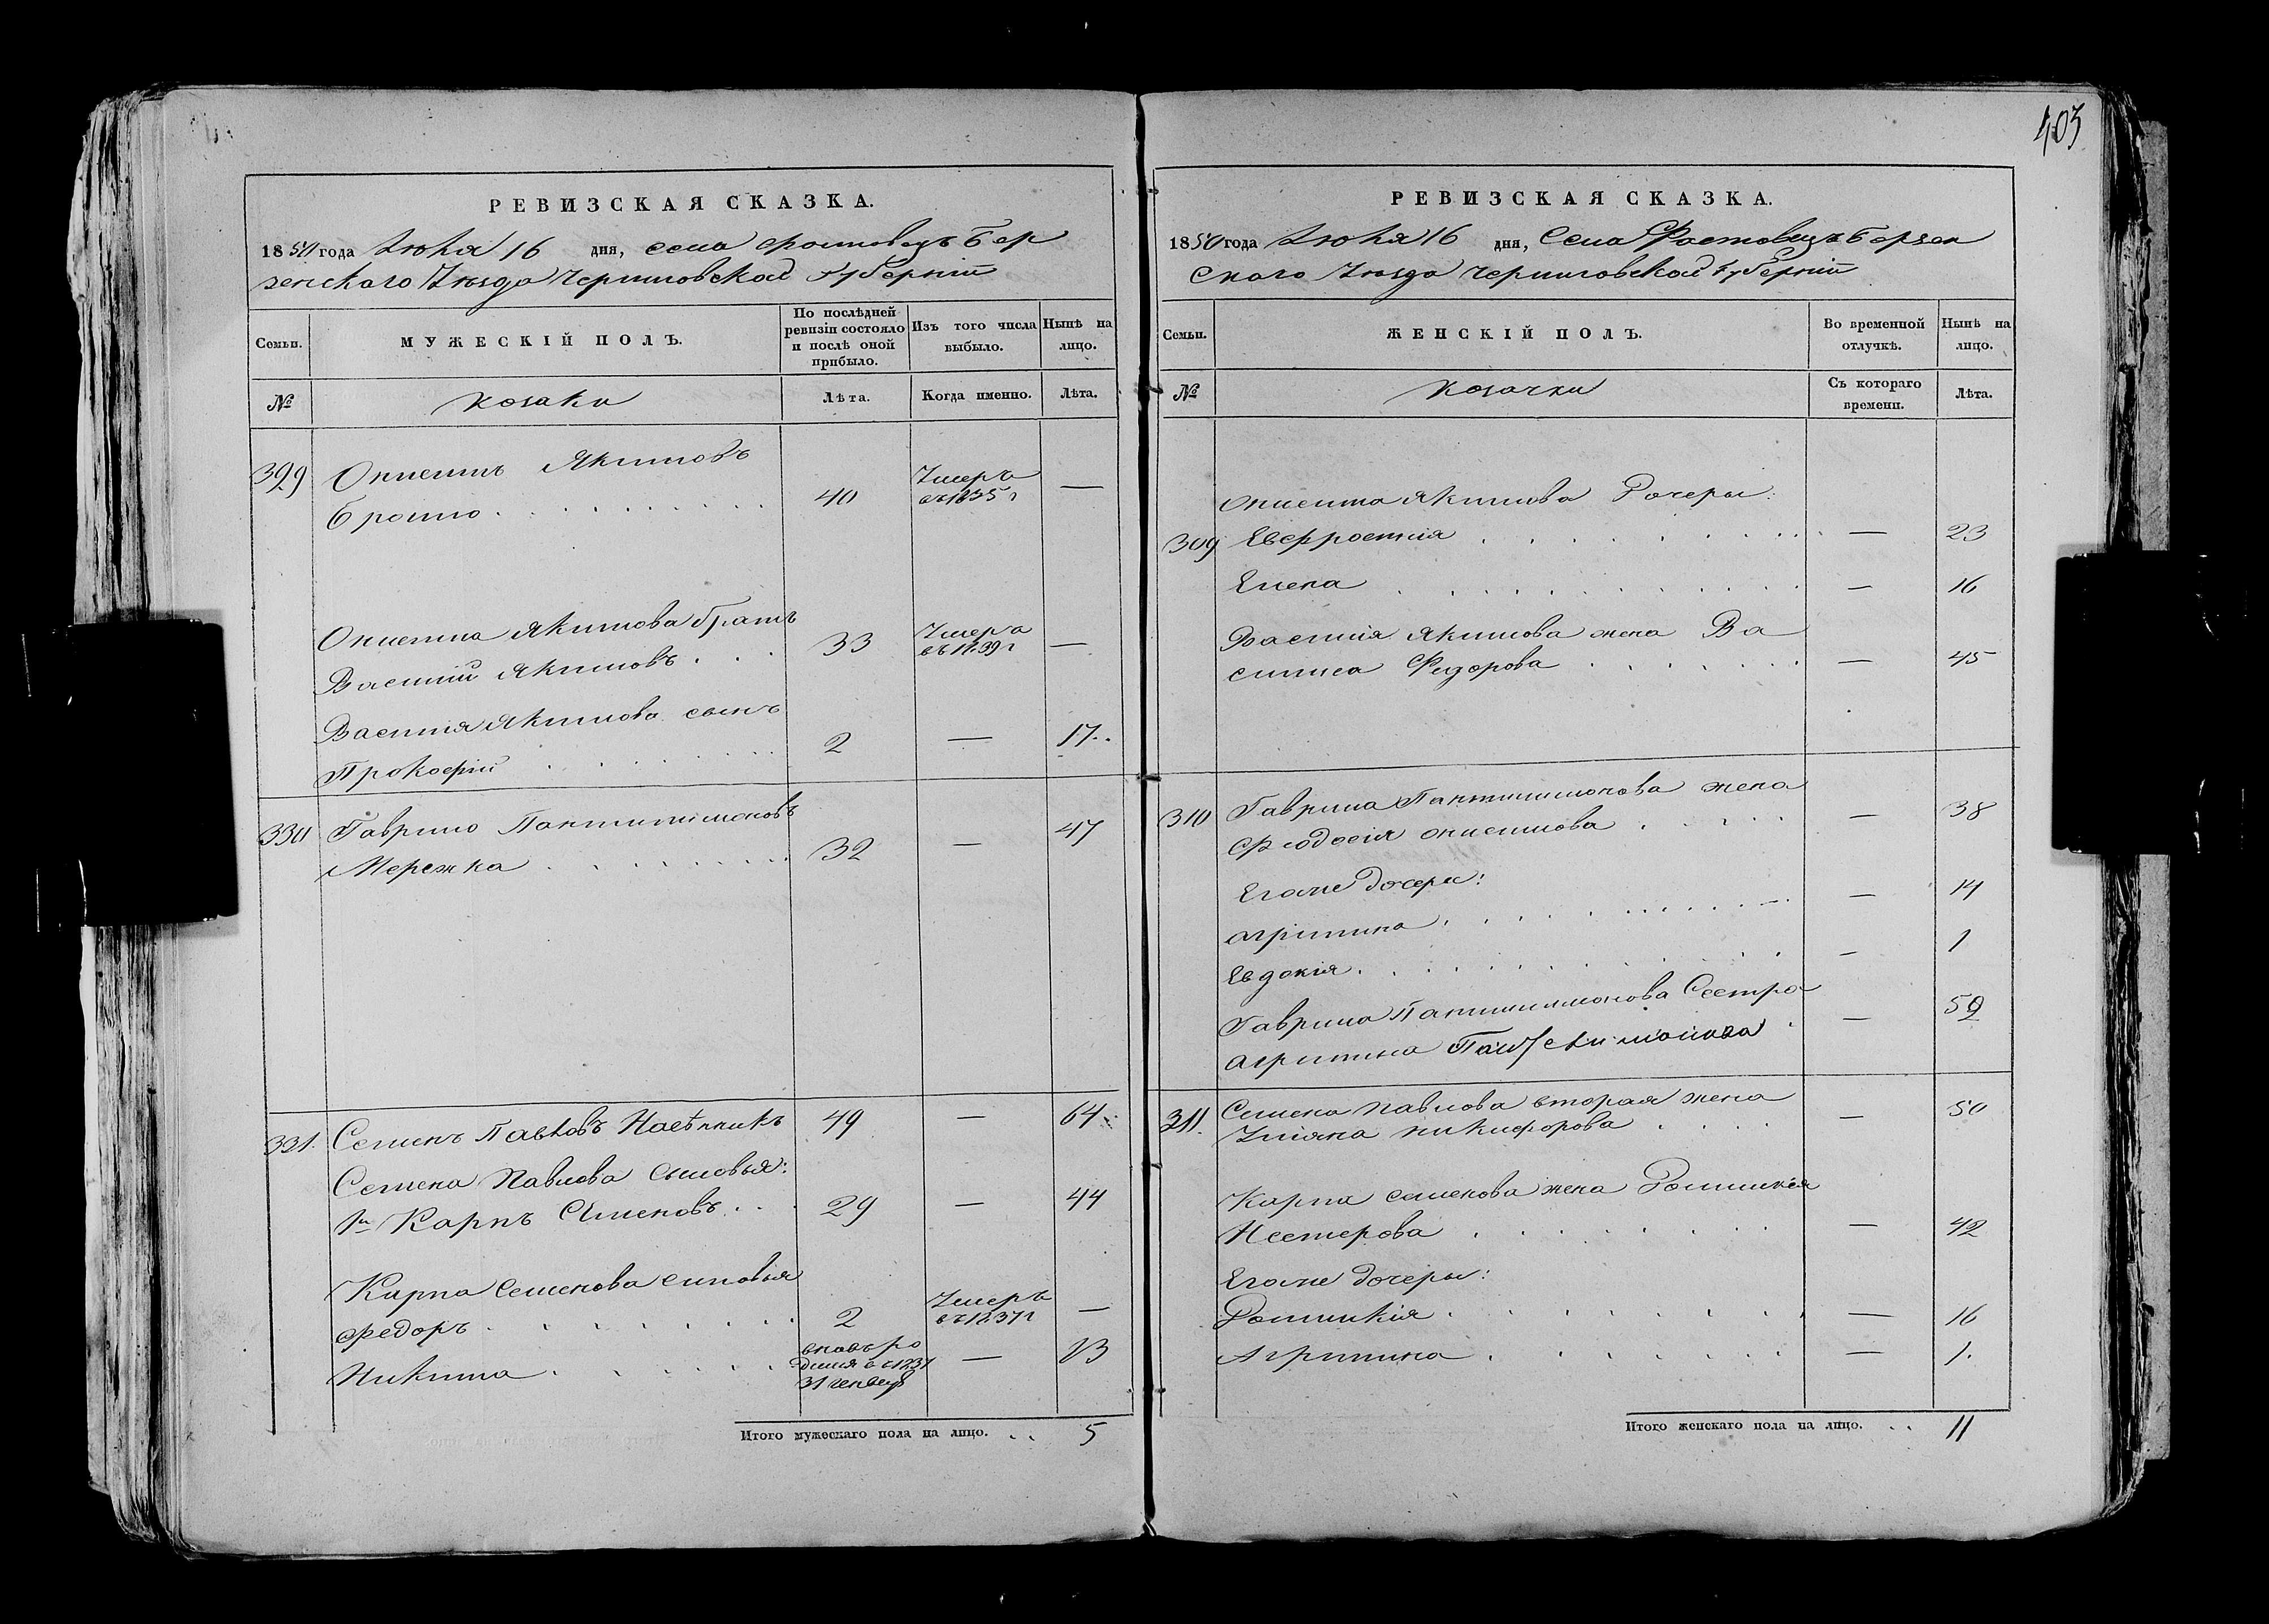 403
РЕВИЗСКАЯ СКАЗКА.
1850 года Іюня 16 дня, села Фастовецъ Бор
зенскаго Уѣзда Черниговской Губерніи
Семьи.
МУЖЕСКІЙ ПОЛЪ.
По послѣдней ревизіи состояло и послѣ оной прибыло.
Изъ того числа выбыло.
Нынѣ на лицо.
№
Козаки
Лѣта.
Когда именно.
Лѣта.
329 Якимовъ
40 Умеръ въ 1835 г —
Якимова братъ
Василій Якимовъ 33 Умеръ въ 1839 г —
Василія Якимова сынъ
Прокофій 2 — 17
330 Гаврило Пантилимоновъ
Мережка 32 — 47
331. Семенъ Павловъ 49 — 64
Семена Павлова сыновья:
1й Карпъ Семеновъ 29 — 44
Карпа Семенова сыновья
Федоръ 2 Умеръ въ 1837 г —
Никита вновь ро — 13
Итого мужескаго пола на лицо. 5
РЕВИЗСКАЯ СКАЗКА.
1850 года Іюня 16 дня, Села Фастовецъ Борзен
скаго Уѣзда Черниговской Губерніи
Семьи.
ЖЕНСКІЙ ПОЛЪ.
Во временной отлучкѣ.
Нынѣ на лицо.
№
Козачки
Съ котораго времени.
Лѣта.
Якимова Дочеры:
309 Евфросинія — 23
Елена — 16
Василія Якимова жена Ва
силиса Федорова — 45
310 Гаврила Пантилимонова жена
Феодосія — 38
Егоже дочеры:
Агрипина — 14
Евдокія — 1
Гаврила Пантилимонова Сестра
Агрипина Пантелимонова — 50
311. Семена Павлова вторая жена
Уліяна Никифорова — 50
Карпа Семенова жена
Нестерова — 42
Егоже дочеры:
— 16
Агрипина — 1.
Итого женскаго пола на лицо. 11